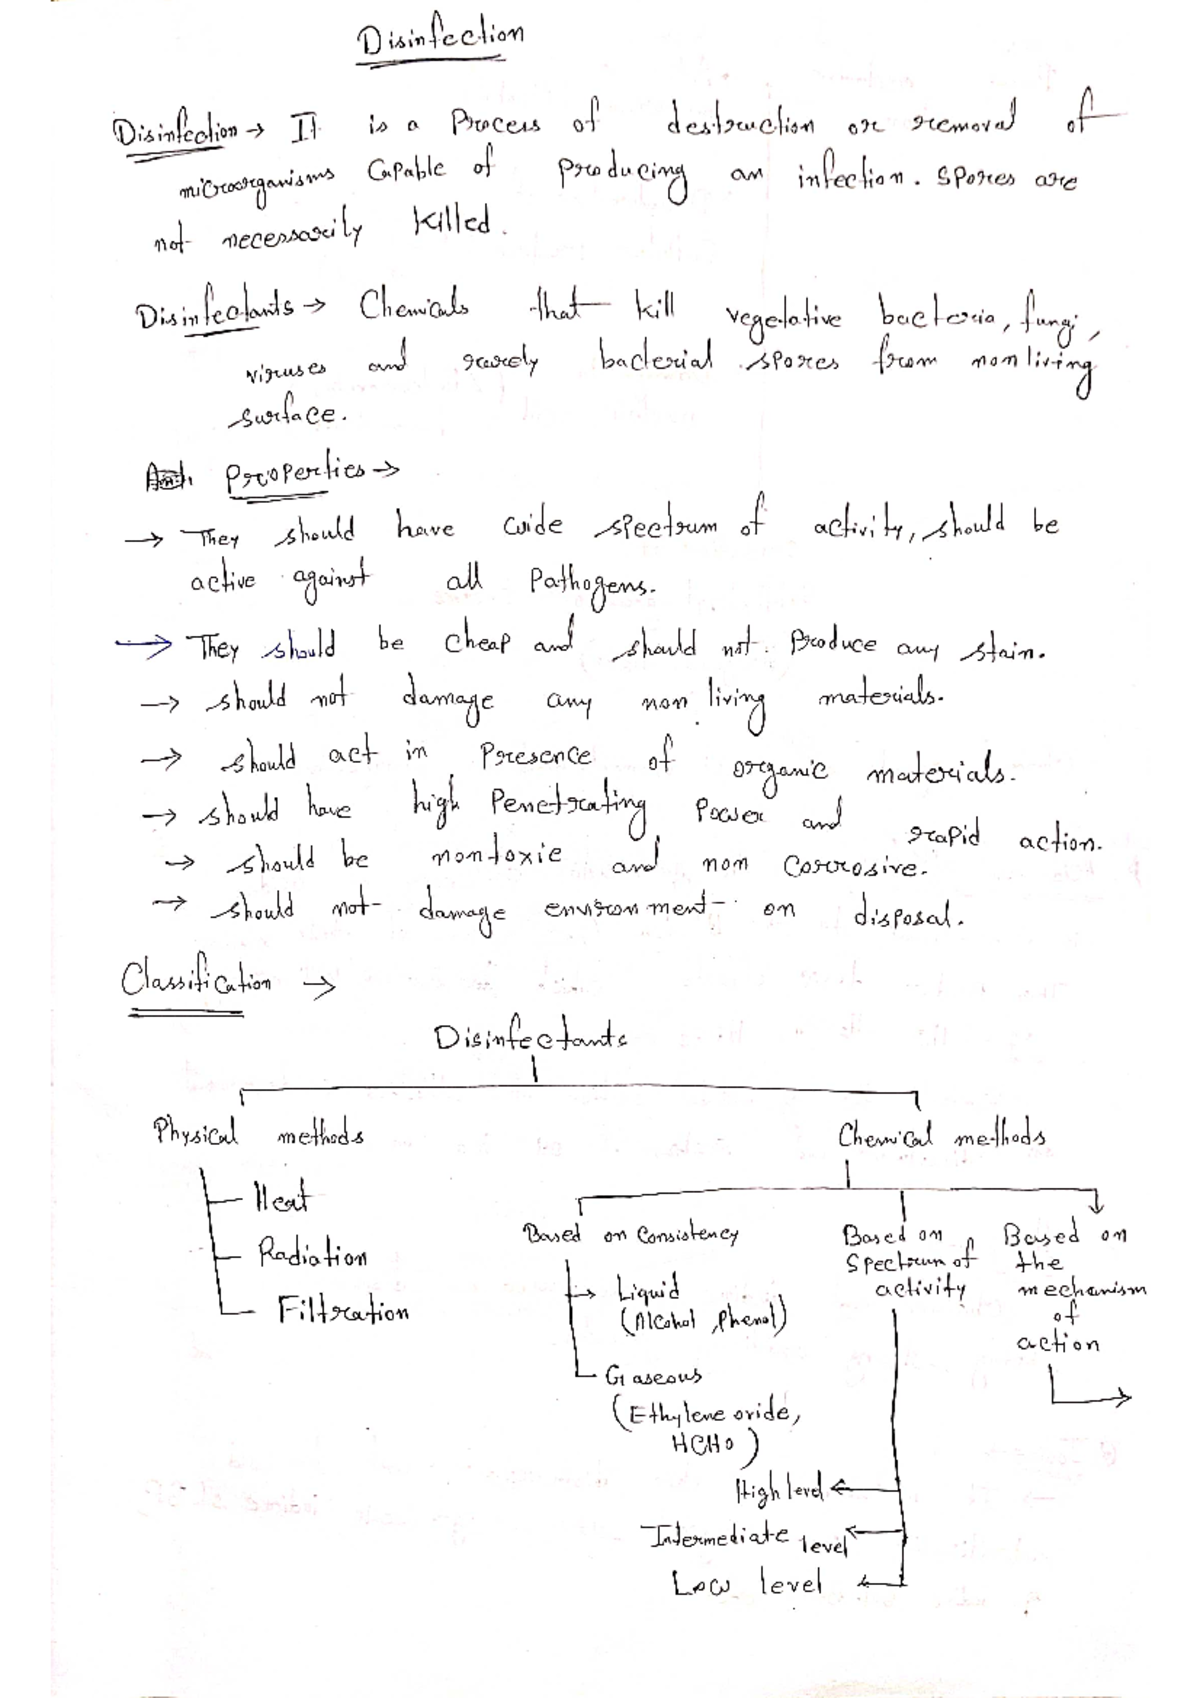 Disinfection
Disinfection → It is a Process of destruction or removal of
microorganisms Capable of producing an infection. Spores are
not necessarily killed.
Disinfectants → Chemicals that kill vegetative bacteria, fungi,
viruses and rarely bacterial spores from nonliving
surface.
Properties →
→ They should have wide spectrum of activity, should be
active against all Pathogens.
→ They should be cheap and should not Produce any stain.
→ should not damage any non living materials.
→ should act in Presence of organic materials.
→ should have high Penetrating Power and rapid action.
→ should be nontoxic and non Corrosive.
→ should not damage environment on disposal.
Classification →
Disinfectants
Physical methods
Heat
Radiation
Filtration
Chemical methods
Based on Consistency
→ Liquid
(Alcohol, Phenol)
Gaseous
(Ethylene oxide,
HCHO)
Based on
Spectrum of
activity
High level
Intermediate level
Low level
Based on
the
mechanism
of
action